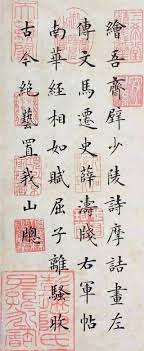 繪吾齋壁少陵詩摩詰畫左
傳文馬遷史薛濤牋右軍帖
南華經相如賦屈子離騷收
古今絕藝置我山牕